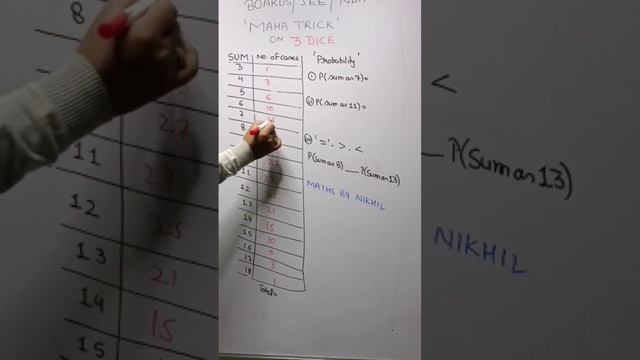 BOARDS/JEE/NDA
'MAHA TRICK'
ON 3 DICE
SUM No. of cases
3 1
4 3
5 6
6 10
7 15
8
27
11
12
13 21
14 15
15 10
16 6
17 3
18 1
Total=
'Probability'
P(sum as 7)=
P(sum as 11)=
'=' , > , <
P(sum as 8) __ P(sum as 13)
MATHS BY NIKHIL
8
27
11
12 25
13 21
14 15
15
<
P(sum as 13)
NIKHIL